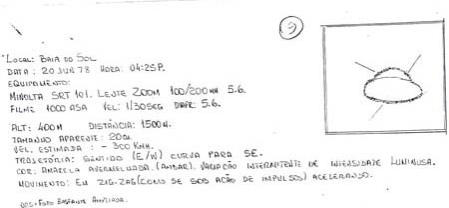 9
"Local: Baia do Sol
DATA: 20 JUN 78 HORA: 04:25P.
EQUIPAMENTO:
MINOLTA SRT 101. LENTE ZOOM 100/200 MM 5.6.
FILME 1000 ASA VEL: 1/30SEG DIAFR: 5.6.
ALT: 400M DISTÂNCIA: 1500M.
TAMANHO APARENTE: 20cm
VEL. ESTIMADA: - 300 KMH.
TRAJETÓRIA: SENTIDO (E/W) CURVA PARA SE.
COR: AMARELA AVERMELHADA. (AMBAR). VARIAÇÃO INTERMITENTE DE INTENSIDADE LUMINOSA.
MOVIMENTO: EM ZIG-ZAG (COMO SE SOB AÇÃO DE IMPULSOS) ACELERANDO.
OBS: FOTO BASTANTE AMPLIADA.